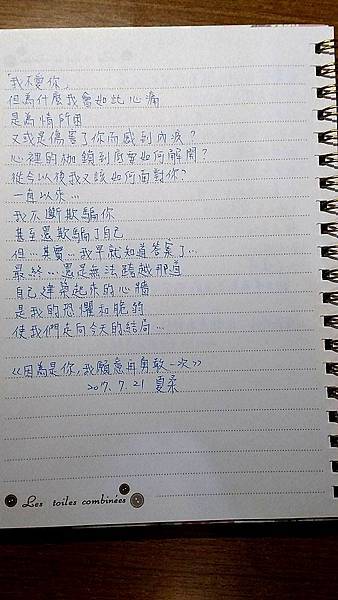 「我不愛你」
但為什麼我會如此心痛
是為情所困
又或是傷害了你而感到內疚？
心裡的枷鎖到底要如何解開？
從今以後我又該如何面對你？
一直以來…
我不斷欺騙你
甚至還欺騙了自己
但…其實…我早就知道答案了…
最終…還是無法跨越那道
自己建築起來的心牆
是我的恐懼和脆弱
使我們走向今天的結局…
《因為是你，我願意再勇敢一次》
2017.7.21 夏柔
Les toiles combinées